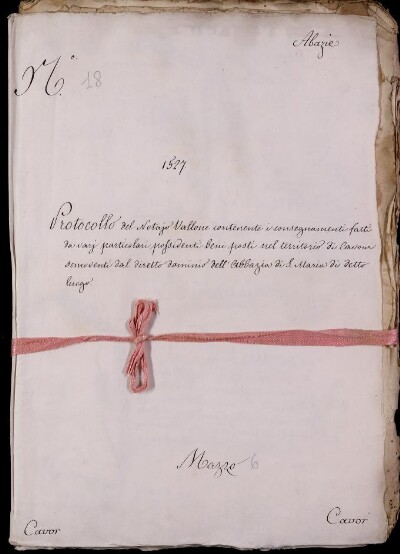 Abazie
N.° 18
1527
Protocollo del Notajo Vallone contenente i consegnamenti fatti
da varj particolari possidenti beni posti nel territorio di Cavour
semoventi dal diretto dominio dell'Abbazia di S. Maria di detto
luogo
Mazzo 6
Cavor
Cavor